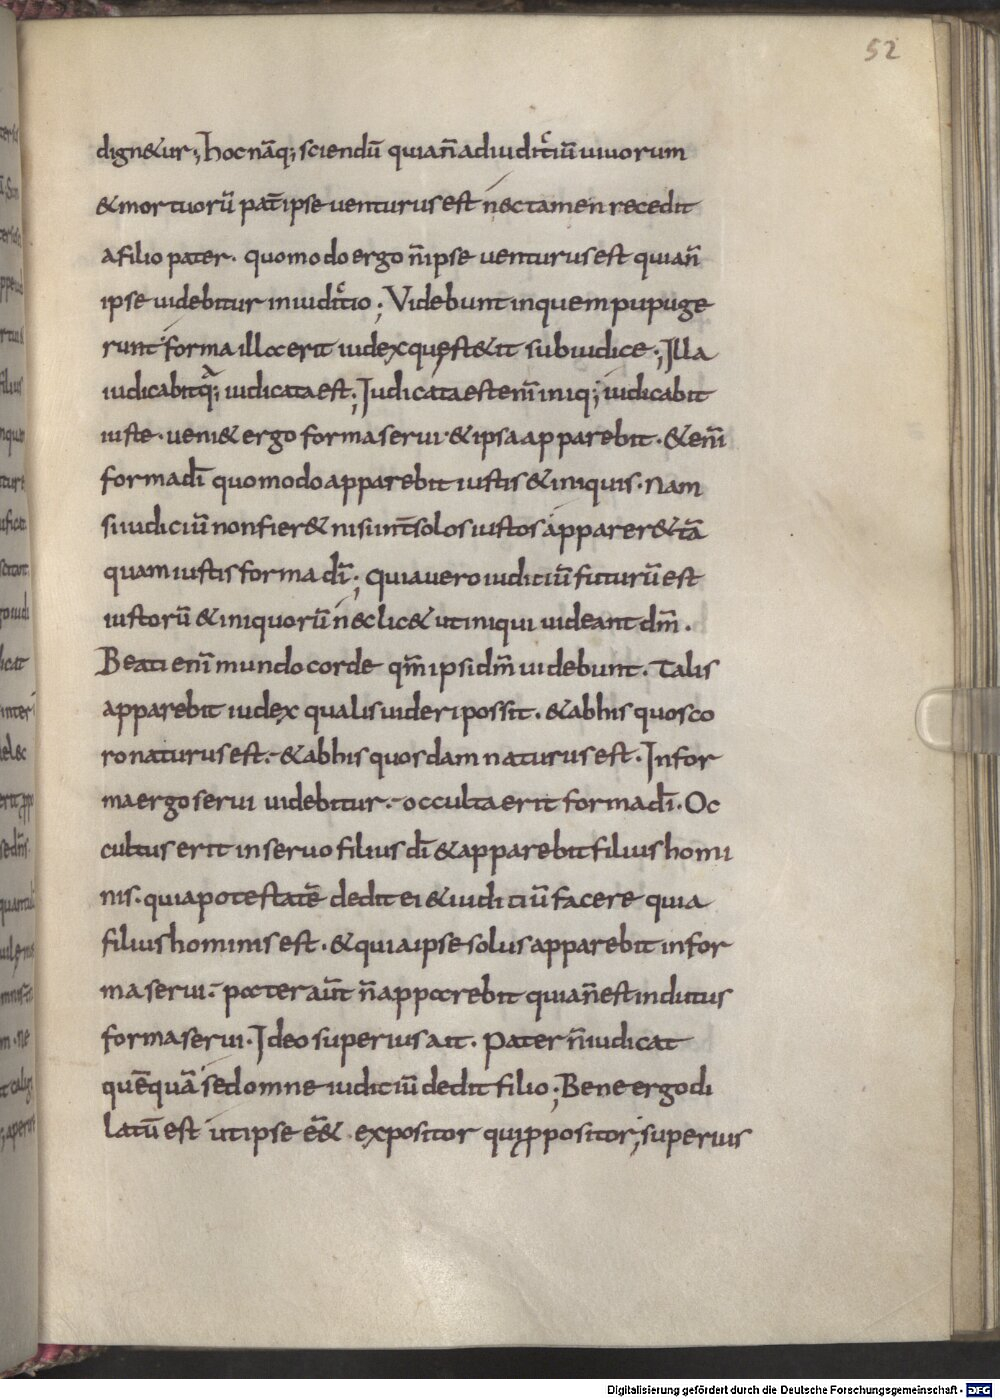 52
dign&ur; hoc nāq; sciendū quia n̄ ad iuditiū uiuorum
& mortuorū pat̄ ipse uenturus est nec tamen recedit
a filio pater. quomodo ergo n̄ ipse uenturus est quia n̄
ipse uidebitur in iuditio; Videbunt in quem pupuge
runt forma illa erit iudex quę st&it sub iudice; Illa
iudicabit q̄; iudicata est; Iudicata est eni̅ iniq; iudicabit
iuste. ueni& ergo forma serui & ipsa apparebit. & eni̅
forma dī quomodo apparebit iustis & iniquis. Nam
si iudiciū non fier& nisi int̄ solos iustos apparer& tā
quam iustis forma dī; Quia uero iuditiū futurū est
iustorū & iniquorū nec lic& ut iniqui uideant dm̄.
Beati eni̅ mundo corde qm̄ ipsi dm̄ uidebunt. Talis
apparebit iudex qualis uideri possit. & ab his quos co
ronaturus est. & ab his quos damnaturus est. In for
ma ergo serui uidebitur. occulta erit forma dī. Oc
cultus erit in seruo filius dī & apparebit filius homi
nis. quia potestatē dedit ei & iuditiū facere quia
filius hominis est. & quia ipse solus apparebit in for
ma serui. pater aūt n̄ apparebit quia n̄ est indutus
forma serui. Ideo superius ait. Pater n̄ iudicat
quēquā sed omne iudiciū dedit filio; Bene ergo di
latū est ut ipse eēt& expositor qui ꝓpositor; superius
Digitalisierung gefördert durch die Deutsche Forschungsgemeinschaft - DFG